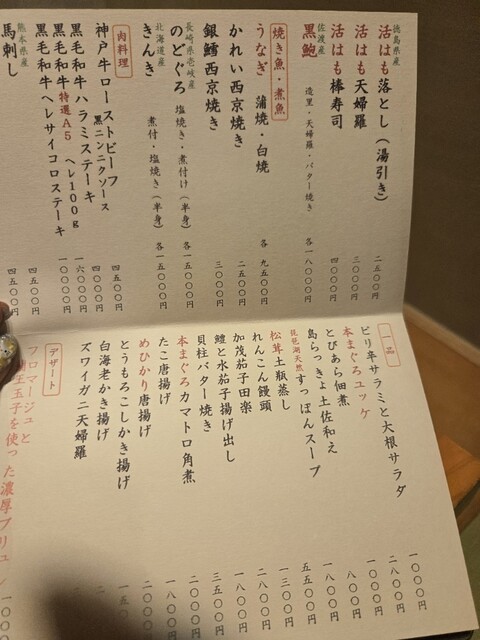 徳島県産
活はも落とし（湯引き）
二五〇〇円
活はも天婦羅
三〇〇〇円
活はも棒寿司
四〇〇〇円
佐渡産
黒鮑
造里・天婦羅・バター焼き
各一八〇〇〇円
焼き魚・煮魚
うなぎ 蒲焼・白焼
各 九五〇〇円
かれい西京焼き
二五〇〇円
銀鱈西京焼き
三〇〇〇円
長崎県壱岐産
のどぐろ 塩焼き・煮付け（半身）
各一五〇〇〇円
北海道産
きんき 煮付・塩焼き（半身）
各一五〇〇〇円
肉料理
神戸牛ローストビーフ
黒ニンニクソース
四五〇〇円
黒毛和牛ハラミステーキ
四〇〇〇円
黒毛和牛特選A5 ヘレ100g
一六〇〇〇円
黒毛和牛ヘレサイコロステーキ
一〇〇〇〇円
熊本県産
馬刺し
四五〇〇円
四五〇〇円
一品
ピリ辛サラミと大根サラダ
一〇〇〇円
本まぐろユッケ
二八〇〇円
とびあら佃煮
一〇〇〇円
島らっきょ土佐和え
八〇〇円
琵琶湖天然すっぽんスープ
一八〇〇円
松茸土瓶蒸し
五五〇〇円
れんこん饅頭
一三〇〇円
加茂茄子田楽
二八〇〇円
鱧と水茄子揚げ出し
一八〇〇円
貝柱バター焼き
三五〇〇円
本まぐろカマトロ角煮
二〇〇〇円
たこ唐揚げ
一八〇〇円
めひかり唐揚げ
二〇〇〇
とうもろこしかき揚げ
一五〇
白海老かき揚げ
ズワイガニ天婦羅
デザート
フロマージュと
玉子を使った濃厚ブリュ
一〇〇